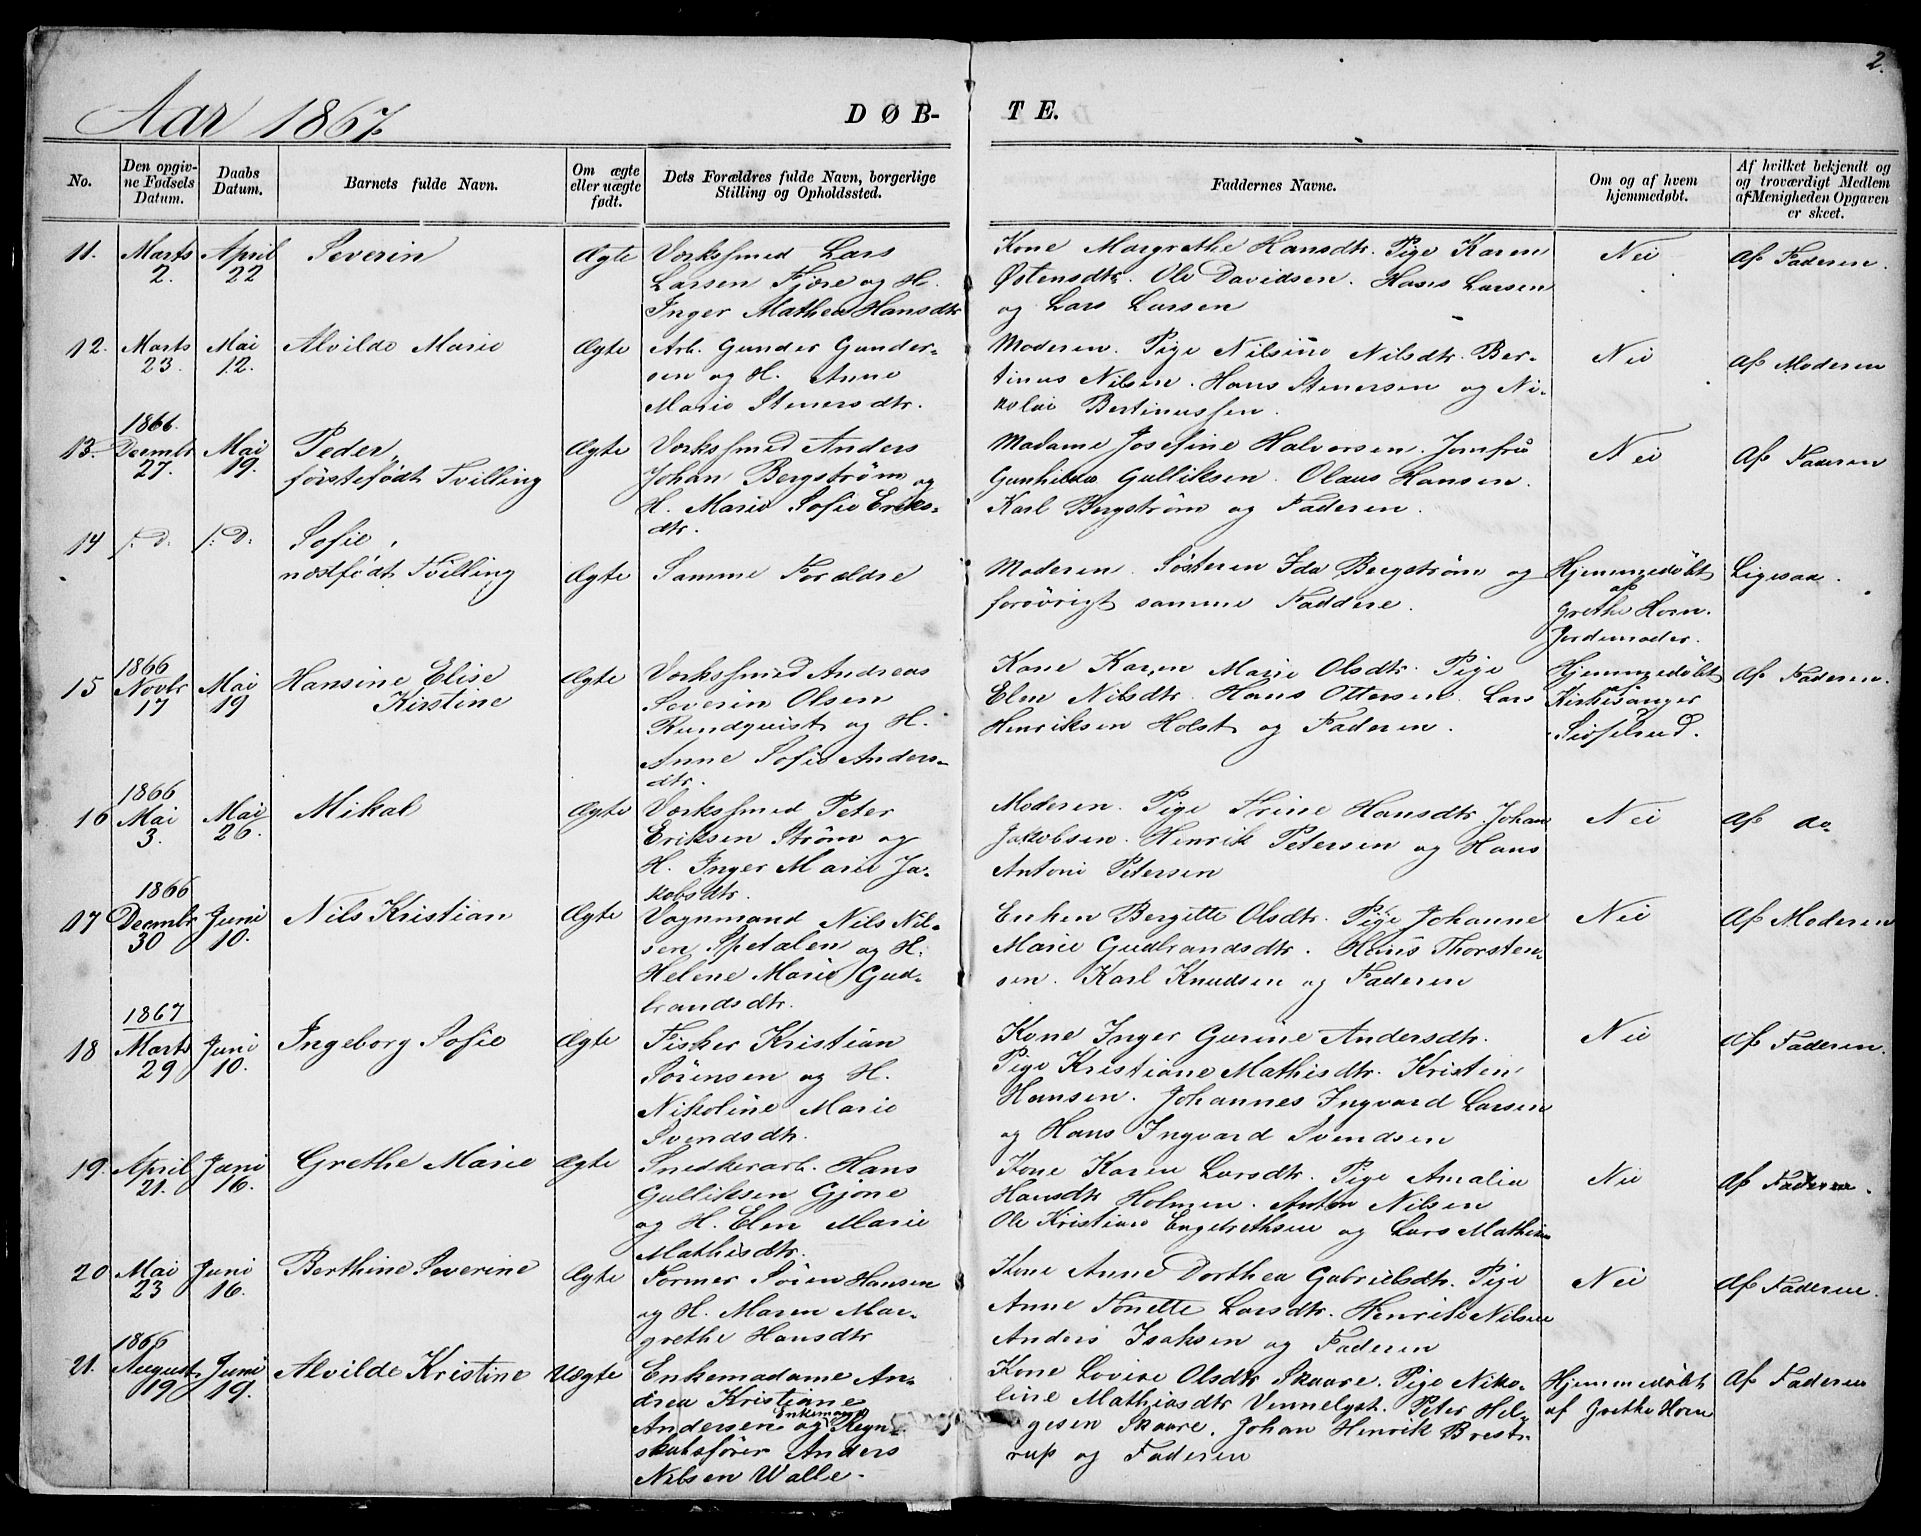 2.
Aar 1867.
DØB-
TE.
No.
Den opgiv-
ne Fødsels
Datum.
Daabs
Datum.
Barnets fulde Navn.
Om ægte
eller uægte
født.
Dets Forældres fulde Navn, borgerlige
Stilling og Opholdssted.
Faddernes Navne.
Om og af hvem
hjemmedøbt.
Af hvilket bekjendt og
og troværdigt Medlem
af Menigheden Opgaven
er skeet.
11.
Marts
2.
April
22
Severin
Ægte
Værksmed Lars
Larsen Fjære og H.
Inger Mathea Hansdtr
Kone Margrethe Hansdtr. Pige Karen
Østensdtr. Ole Davidsen. Hans Larsen
og Lars Larsen
Nei
Af Faderen.
12.
Marts
23.
Mai
12.
Alvilde Marie
Ægte
Arb. Gunder Gunder-
sen og H. Anne
Marie Stenersdtr.
Moderen. Pige Nilsine Nilsdtr. Ber-
tinus Nilsen. Hans Stenersen og Ni-
kolai Bertinussen.
Nei
Af Moderen
13.
1866.
Decembr
27.
Mai
19.
Peder,
førstefødt Tvilling
Ægte
Værksmed Anders
Johan Bergstrøm og
H. Marie Sofie Eriks-
dtr.
Madame Josefine Halvorsen. Jomfru
Gunhilda Gulliksen. Olaus Hansen.
Karl Bergstrøm og Faderen.
Nei
Af Faderen
14
s. D.
s. D.
Sofie,
næstfødt Tvilling
Ægte
Samme Forældre
Moderen. Søsteren Ida Bergstrøm og
forøvrigt samme Faddere.
Hjemmedøbt
af
Grethe Horn.
Jordemoder.
Ligesaa.
15
1866
Novbr
17
Mai
19
Hansine Elise
Kirstine
Ægte
Værksmed Andreas
Severin Olsen
Rundquist og H.
Anne Sofie Anders-
dtr.
Kone Karen Marie Olsdtr. Pige
Elen Nilsdtr. Hans Ottersen. Lars
Henriksen Holst og Faderen.
Hjemmedøbt
af
Kirkesanger
Af Faderen.
16
1866
Mai
3.
Mai
26.
Mikal
Ægte
Værksmed Peter
Eriksen Strøm og
H. Inger Marie Ja-
kobsdtr.
Moderen. Pige Trine Hansdtr. Johan
Jakobsen. Henrik Petersen og Hans
Antoni Petersen
Nei
Af do-
17
1866
Decembr
30
Juni
10.
Nils Kristian
Ægte
Vognmand Nils Nil-
sen Spetalen og H.
Helene Marie Gud-
brandsdtr.
Enken Bergitte Olsdtr. Pige Johanne
Marie Gudbrandsdtr. Hans Thorsten-
sen. Karl Knudsen og Faderen
Nei
Af Moderen
18
1867
Marts
29
Juni
10.
Ingeborg Sofie
Ægte
Fisker Kristian
Sørensen og H.
Nikoline Marie
Svendsdtr.
Kone Inger Gurine Andersdtr.
Pige Kristiane Mathisdtr. Kristen
Hansen. Johannes Ingvard Larsen
og Hans Ingvard Svendsen
Nei
Af Faderen.
19.
April
21.
Juni
16.
Grethe Marie
Ægte
Snedkerarb. Hans
Gulliksen Gjøne
og H. Elen Marie
Mathisdtr.
Kone Karen Larsdtr. Pige Amalia
Hansdtr Holmen. Anton Nilsen
Ole Kristian Engebrethsen og Lars Mathisen
Nei
Af Faderen.
20
Mai
23
Juni
16.
Berthine Severine
Ægte
Former Søren Hansen
og H. Maren Mar-
grethe Hansdtr
Kone Anne Dorthea Gabrielsdtr. Pige
Anne Tonette Larsdtr. Henrik Nilsen
Anders Isaksen og Faderen
Nei
Af Faderen.
21.
1866
August
19
Juni
19.
Alvilde Kristine
Uægte
Enkemadame An-
drea Kristiane
Andersen og Enkemand Regn-
skabsfører Anders
Nilsen Walle.
Kone Lovise Olsdtr Skaare. Pige Niko-
line Mathiasdtr Vennelyst. Peter Hel-
gesen Skaare. Johan Henrik Brest-
rup og Faderen
Hjemmedøbt
af Grethe Horn
Af Faderen